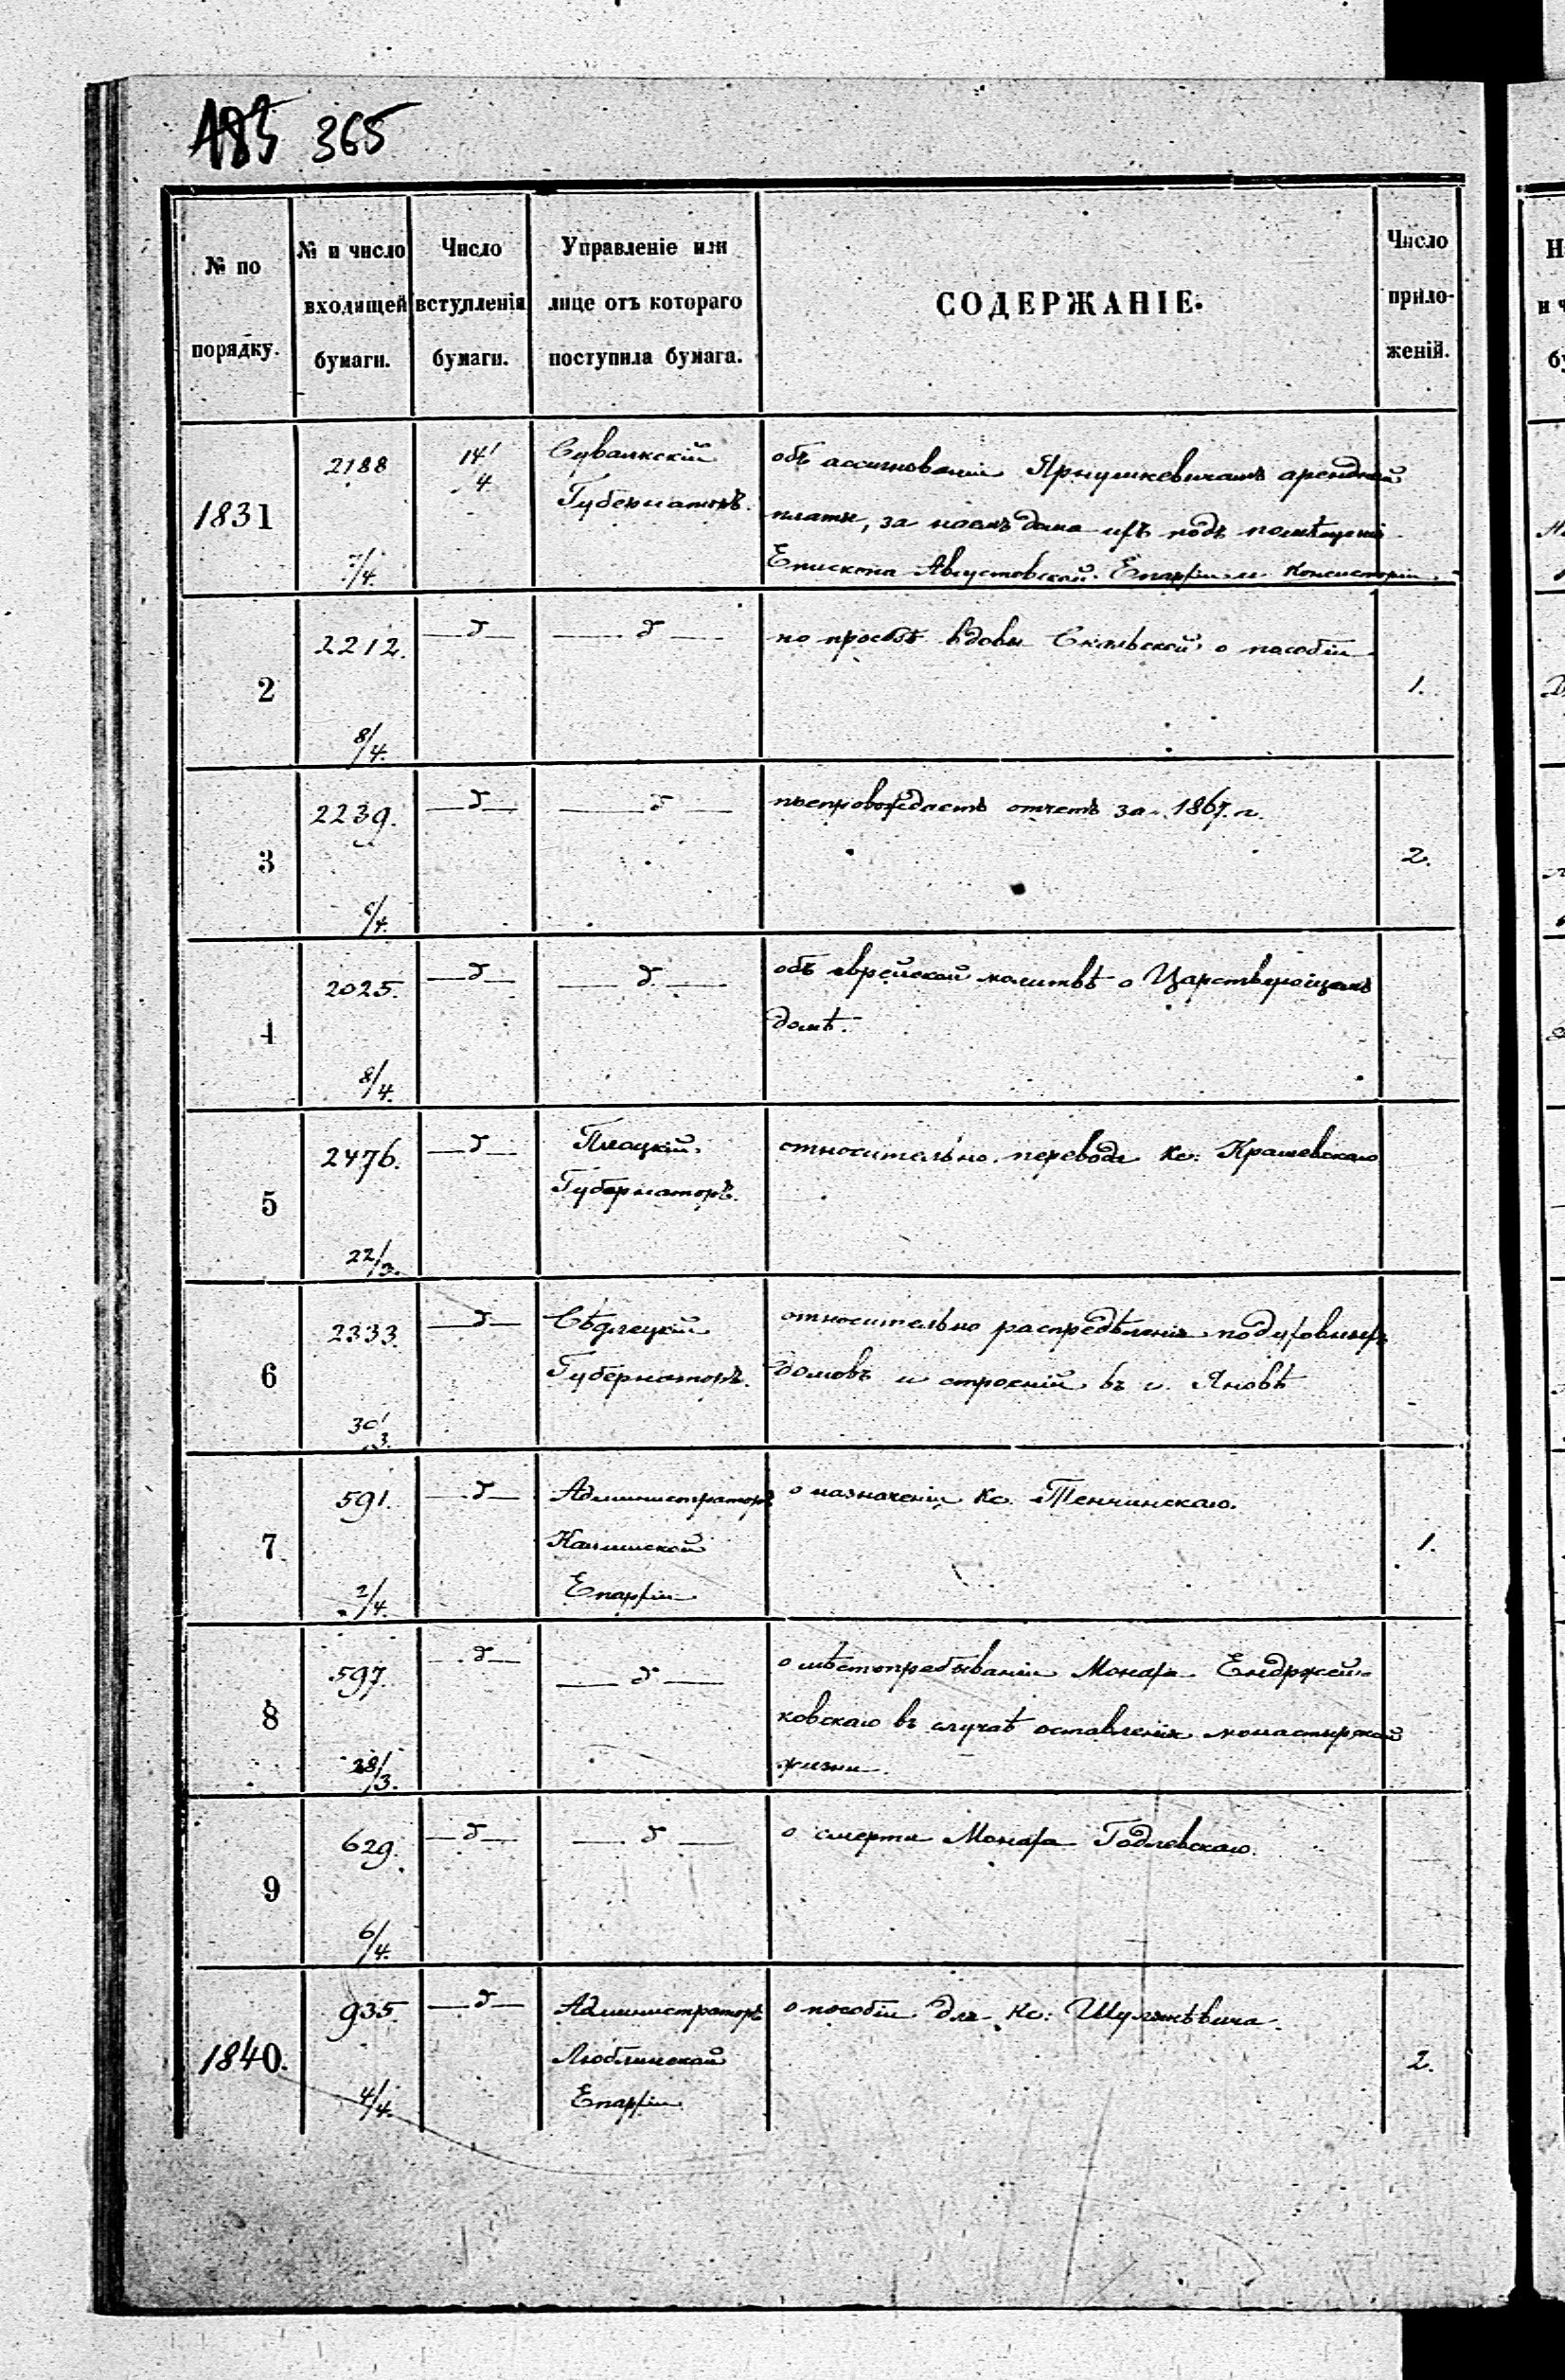 183 365
№ по порядку.
№ и число входящей бумаги.
Число вступленія бумаги.
Управленіе или лице отъ котораго поступила бумага.
СОДЕРЖАНІЕ.
Число прило-женій.
1831
2188
7/4.
14/4
Сувалкскій
Губернаторъ.
объ ассигнованіи Ярнушкевичамъ арендной
платы, за наемъ дома ихъ подъ помѣщеніе
Епископа Августовской Епархіи и Консисторіи.
2
2212.
8/4.
—д—
—д—
по просьбѣ вдовы о пособіи
1.
3
2239.
/4.
—д—
—д—
препровождаетъ отчетъ за 1867 г.
2.
4
2025.
8/4.
—д—
—д—
объ еврейской молитвѣ о Царствующемъ
домѣ.
5
2476.
22/3.
—д—
Плоцкій
Губернаторъ.
относительно перевода Кс: Крашевскаго
6
2333
30/3.
—д—
Сѣдлецкій
Губернаторъ.
относительно распредѣленія подуховныхъ
домовъ и строеній въ г. Яновѣ
7
591.
2/4.
—д—
Администраторъ
Калишской
Епархіи
о назначеніи Кс. Тенчинскаго.
1.
8
597.
28/3.
—д—
—д—
о мѣстопребываніи Монаха Енджей-
ковскаго въ случаѣ оставленія монастырской
жизни.
9
629.
6/4.
—д—
—д—
о смерти Монаха Годлевскаго.
1840.
935.
4/4.
—д—
Администраторъ
Люблинской
Епархіи
о пособіи для Кс:
2.